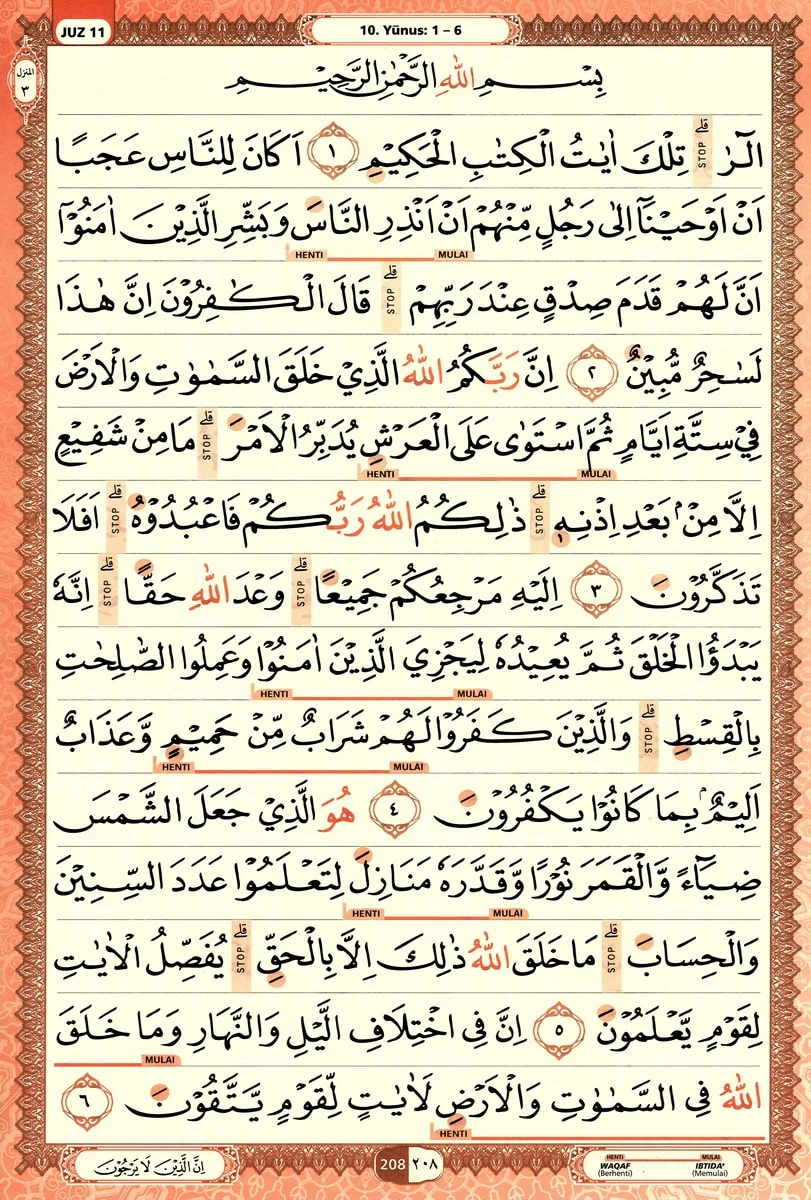 JUZ 11
10. Yūnus: 1 – 6
المنزل
٣
بِسْمِ اللّٰهِ الرَّحْمٰنِ الرَّحِيْمِ
الۤرٰ ۗ STOP تِلْكَ اٰيٰتُ الْكِتٰبِ الْحَكِيْمِ ١ اَكَانَ لِلنَّاسِ عَجَبًا
اَنْ اَوْحَيْنَآ اِلٰى رَجُلٍ مِّنْهُمْ اَنْ اَنْذِرِ النَّاسَ وَبَشِّرِ الَّذِيْنَ اٰمَنُوْٓا
HENTI MULAI
اَنَّ لَهُمْ قَدَمَ صِدْقٍ عِنْدَ رَبِّهِمْ ۗ STOP قَالَ الْكٰفِرُوْنَ اِنَّ هٰذَا
لَسٰحِرٌ مُّبِيْنٌ ٢ اِنَّ رَبَّكُمُ اللّٰهُ الَّذِيْ خَلَقَ السَّمٰوٰتِ وَالْاَرْضَ
فِيْ سِتَّةِ اَيَّامٍ ثُمَّ اسْتَوٰى عَلَى الْعَرْشِ يُدَبِّرُ الْاَمْرَ ۗ STOP مَا مِنْ شَفِيْعٍ
HENTI MULAI
اِلَّا مِنْۢ بَعْدِ اِذْنِهٖ ۗ STOP ذٰلِكُمُ اللّٰهُ رَبُّكُمْ فَاعْبُدُوْهُ ۗ STOP اَفَلَا
تَذَكَّرُوْنَ ٣ اِلَيْهِ مَرْجِعُكُمْ جَمِيْعًا ۗ STOP وَعْدَ اللّٰهِ حَقًّا ۗ STOP اِنَّهٗ
يَبْدَؤُا الْخَلْقَ ثُمَّ يُعِيْدُهٗ لِيَجْزِيَ الَّذِيْنَ اٰمَنُوْا وَعَمِلُوا الصّٰلِحٰتِ
HENTI MULAI
بِالْقِسْطِ ۗ STOP وَالَّذِيْنَ كَفَرُوْا لَهُمْ شَرَابٌ مِّنْ حَمِيْمٍ وَّعَذَابٌ
HENTI MULAI
اَلِيْمٌۢ بِمَا كَانُوْا يَكْفُرُوْنَ ٤ هُوَ الَّذِيْ جَعَلَ الشَّمْسَ
ضِيَاۤءً وَّالْقَمَرَ نُوْرًا وَّقَدَّرَهٗ مَنَازِلَ لِتَعْلَمُوْا عَدَدَ السِّنِيْنَ
HENTI MULAI
وَالْحِسَابَ ۗ STOP مَا خَلَقَ اللّٰهُ ذٰلِكَ اِلَّا بِالْحَقِّ ۗ STOP يُفَصِّلُ الْاٰيٰتِ
لِقَوْمٍ يَّعْلَمُوْنَ ٥ اِنَّ فِى اخْتِلَافِ الَّيْلِ وَالنَّهَارِ وَمَا خَلَقَ
MULAI
اللّٰهُ فِى السَّمٰوٰتِ وَالْاَرْضِ لَاٰيٰتٍ لِّقَوْمٍ يَّتَّقُوْنَ ٦
HENTI
اِنَّ الَّذِيْنَ لَا يَرْجُوْنَ
208 ٢٠٨
HENTI MULAI
WAQAF IBTIDA'
(Berhenti) (Memulai)